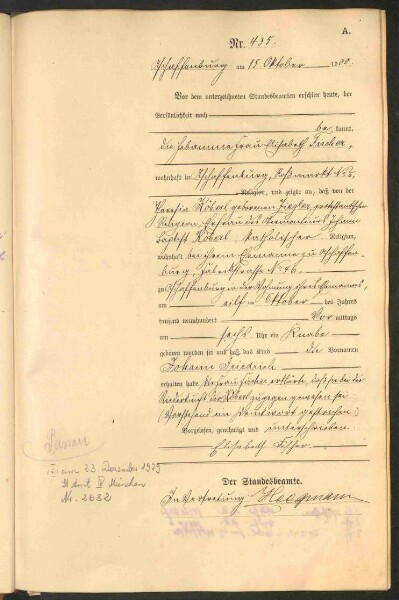 A.
Nr. 435.
Aschaffenburg am 15 Oktober 1900.
Vor dem unterzeichneten Standesbeamten erschien heute, der
Persönlichkeit nach
be kannt,
die Hebamme Frau Elisabeth Fischer,
wohnhaft in Aschaffenburg, Roßmarkt No
Religion, und zeigte an, daß von der
Theresia Köberl geborenen Ziegler, protestantischer
Religion, Ehefrau des Johann
Baptist Köberl, katholischer Religion,
wohnhaft bei ihrem Ehemanne zu Aschaffen-
burg, straße No 46,
zu Aschaffenburg in der Wohnung ihres Ehemannes,
am elf ten Oktober des Jahres
tausend neunhundert Vor mittags
um sechs Uhr ein Knabe
geboren worden sei und daß das Kind die Vornamen
Johann Friedrich
erhalten habe. Die Frau Fischer erklärte, daß sie bei der
Niederkunft der Köberl zugegen gewesen sei.
(Vorstehend ein Druckwort gestrichen.)
Vorgelesen, genehmigt und unterschrieben
Elisabeth Fischer.
Der Standesbeamte.
In Vertretung
23. Dezember 1925
St. Amt IV München
Nr. 2632